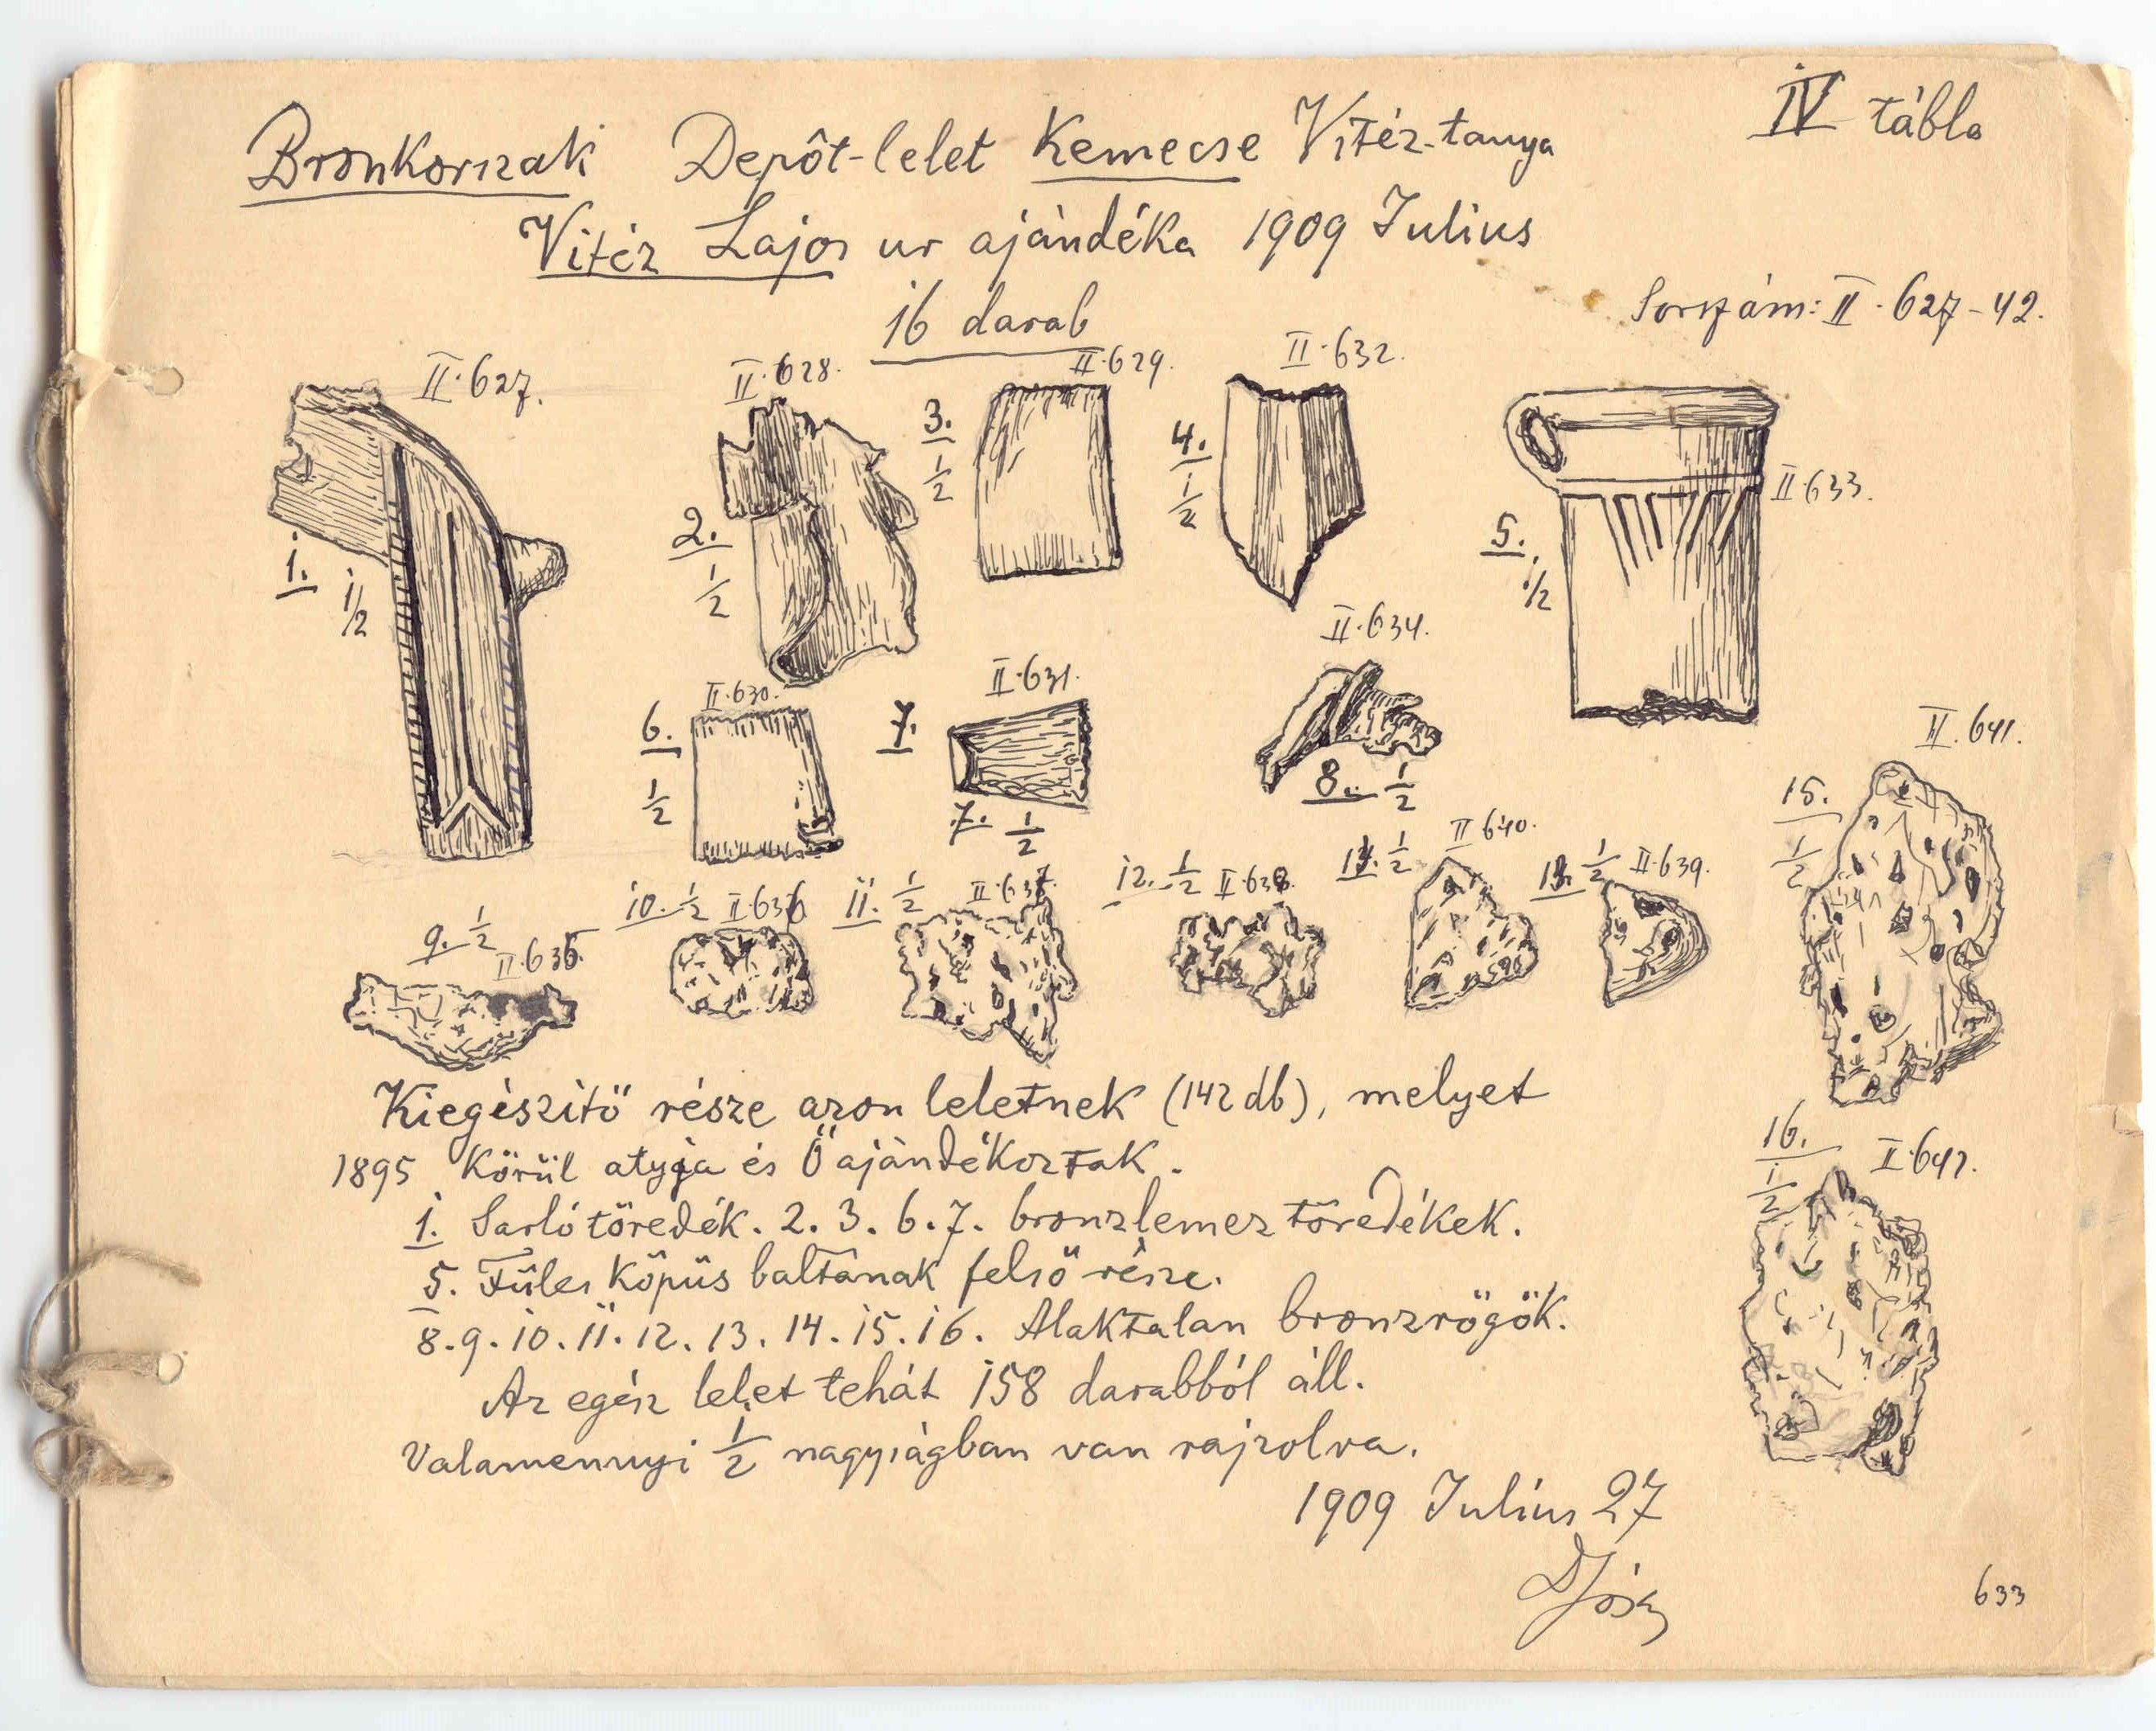 IV tábla
Bronkorszak Depôt-lelet Kemecse Vitéz-tanya
Vitéz Lajos ur ajándéka 1909 Julius
16 darab
Sorszám: II. 627-42.
II. 627.
II. 628.
II. 629.
II. 632.
II 633.
1. 1/2
2. 1/2
3. 1/2
4. 1/2
5. 1/2
II. 630.
II. 631.
II. 634.
6. 1/2
7.
7. 1/2
8. 1/2
II. 641.
15. 1/2
9. 1/2 II. 635.
10. 1/2 II 636
11. 1/2 II. 637.
12. 1/2 II. 638.
14. 1/2 II 640.
13. 1/2 II. 639.
16. 1/2
Kiegészitő része azon leletnek (142 db), melyet
1895 körül atyja és Ő ajándékoztak.
1. Sarló töredék. 2. 3. 6. 7. bronzlemez töredékek.
5. Füles köpüs baltának felső része.
8. 9. 10. 11. 12. 13. 14. 15. 16. Alaktalan bronzrögök.
Az egész lelet tehát 158 darabból áll.
Valamennyi 1/2 nagyságban van rajzolva.
1909 Julius 27
DJósa
633